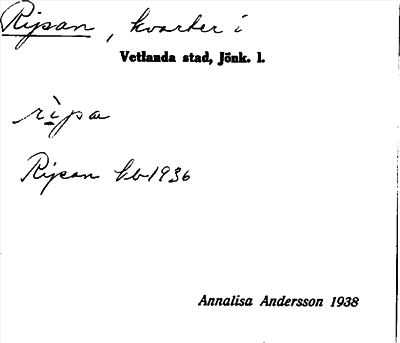 Ripsan, kvarter i
Vetlanda stad, Jönk. l.
rìpa
Ripsan kb 1936
Annalisa Andersson 1938